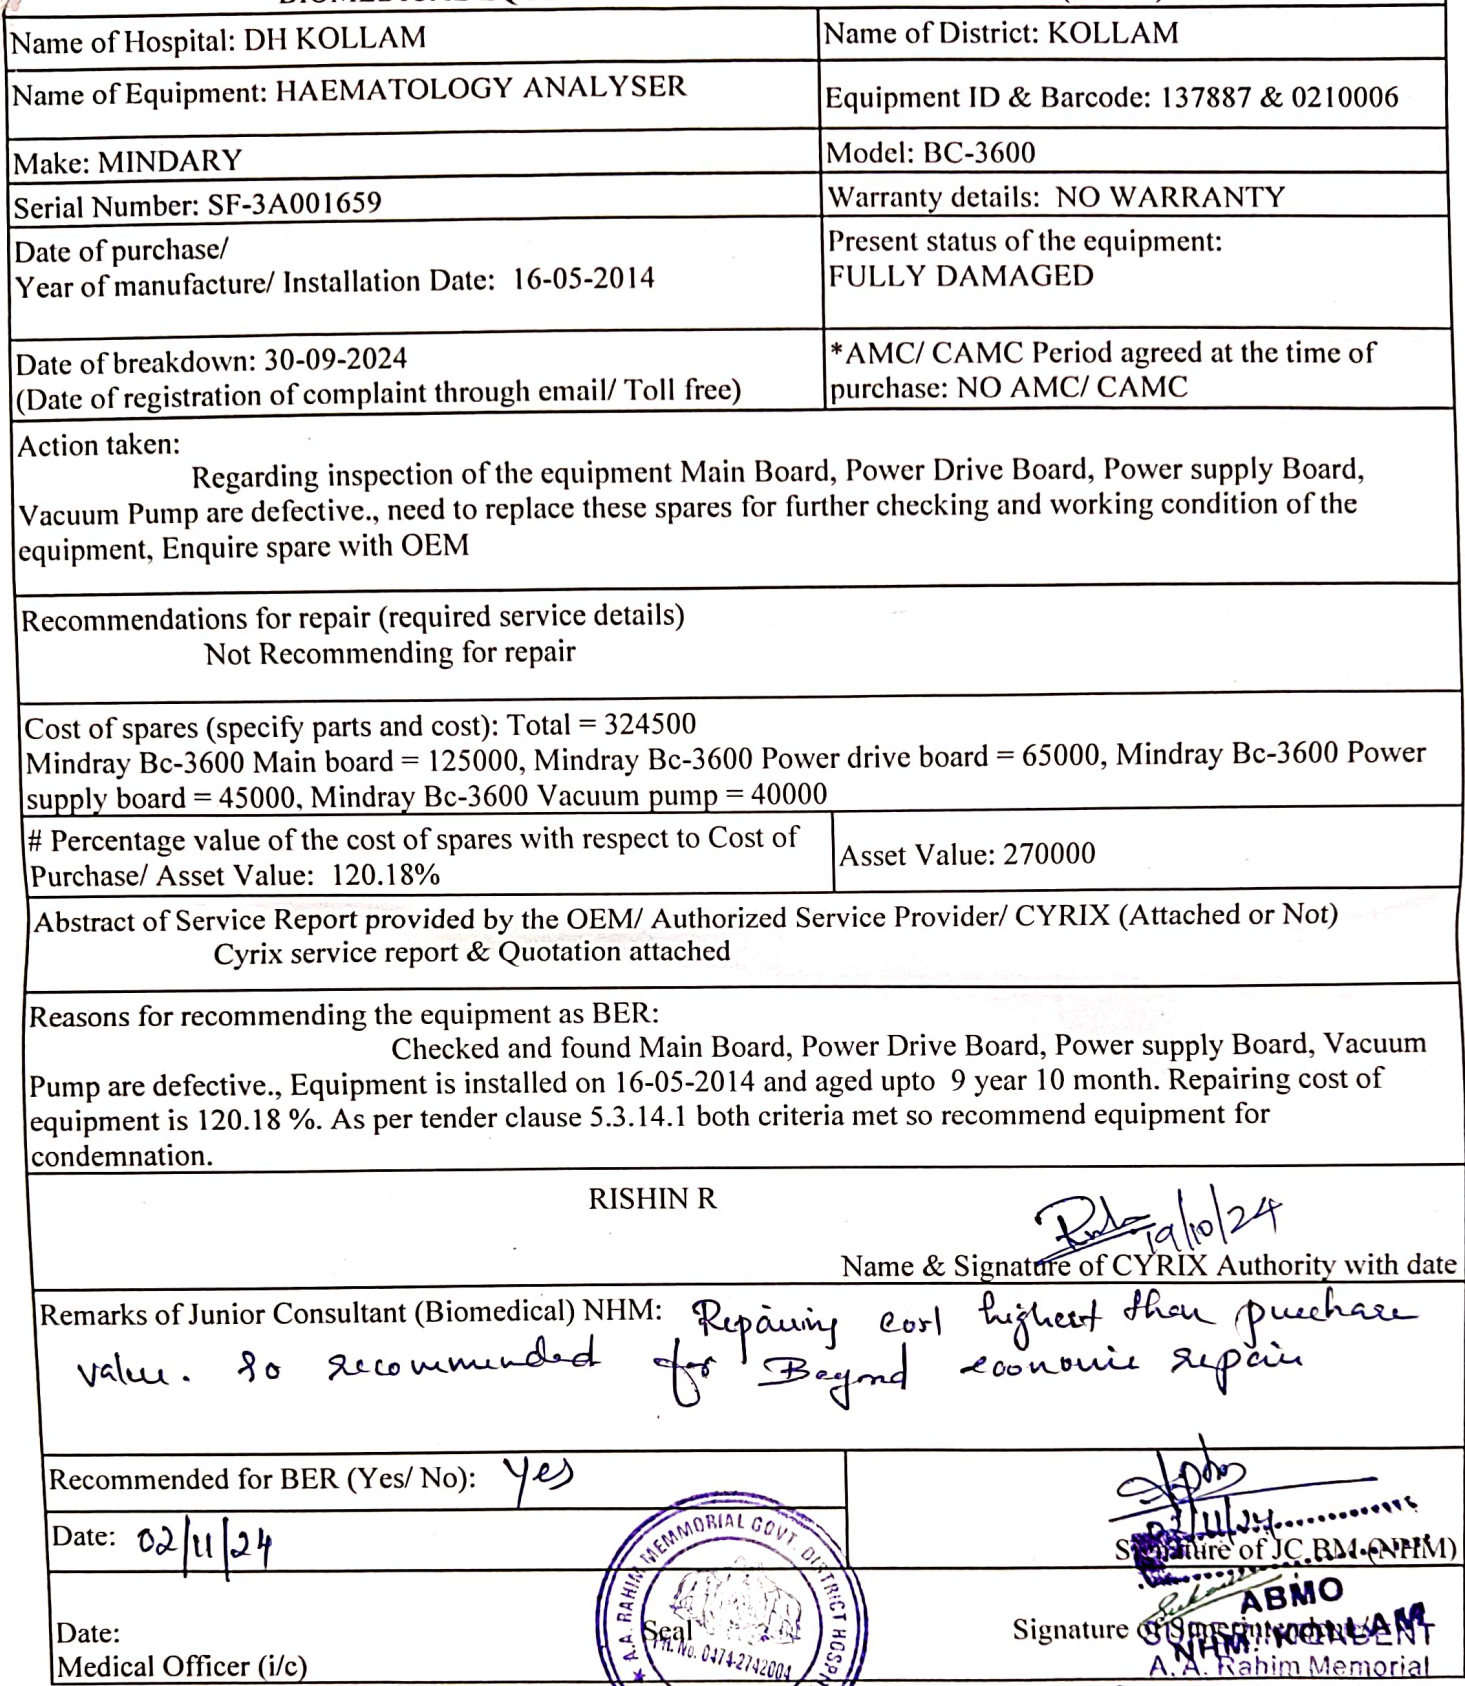 Name of Hospital: DH KOLLAM
Name of District: KOLLAM
Name of Equipment: HAEMATOLOGY ANALYSER
Equipment ID & Barcode: 137887 & 0210006
Make: MINDARY
Model: BC-3600
Serial Number: SF-3A001659
Warranty details: NO WARRANTY
Date of purchase/
Year of manufacture/ Installation Date: 16-05-2014
Present status of the equipment:
FULLY DAMAGED
Date of breakdown: 30-09-2024
(Date of registration of complaint through email/ Toll free)
*AMC/ CAMC Period agreed at the time of
purchase: NO AMC/ CAMC
Action taken:
Regarding inspection of the equipment Main Board, Power Drive Board, Power supply Board,
Vacuum Pump are defective., need to replace these spares for further checking and working condition of the
equipment, Enquire spare with OEM
Recommendations for repair (required service details)
Not Recommending for repair
Cost of spares (specify parts and cost): Total = 324500
Mindray Bc-3600 Main board = 125000, Mindray Bc-3600 Power drive board = 65000, Mindray Bc-3600 Power
supply board = 45000, Mindray Bc-3600 Vacuum pump = 40000
# Percentage value of the cost of spares with respect to Cost of
Purchase/ Asset Value: 120.18%
Asset Value: 270000
Abstract of Service Report provided by the OEM/ Authorized Service Provider/ CYRIX (Attached or Not)
Cyrix service report & Quotation attached
Reasons for recommending the equipment as BER:
Checked and found Main Board, Power Drive Board, Power supply Board, Vacuum
Pump are defective., Equipment is installed on 16-05-2014 and aged upto 9 year 10 month. Repairing cost of
equipment is 120.18 %. As per tender clause 5.3.14.1 both criteria met so recommend equipment for
condemnation.
RISHIN R
19/10/24
Name & Signature of CYRIX Authority with date
Remarks of Junior Consultant (Biomedical) NHM: Repairing cost highest than purchase
value. So recommended for Beyond economic repair
Recommended for BER (Yes/ No): Yes
Date: 02/11/24
Signature of JC BM (NHM)
ABMO
NHM. KOLLAM
A.A. RAHIM MEMMORIAL GOVT. DISTRICT HOSPI
Seal
PH. No. 0474-2742004
Date:
Medical Officer (i/c)
Signature of Superintendent
A. A. Rahim Memorial